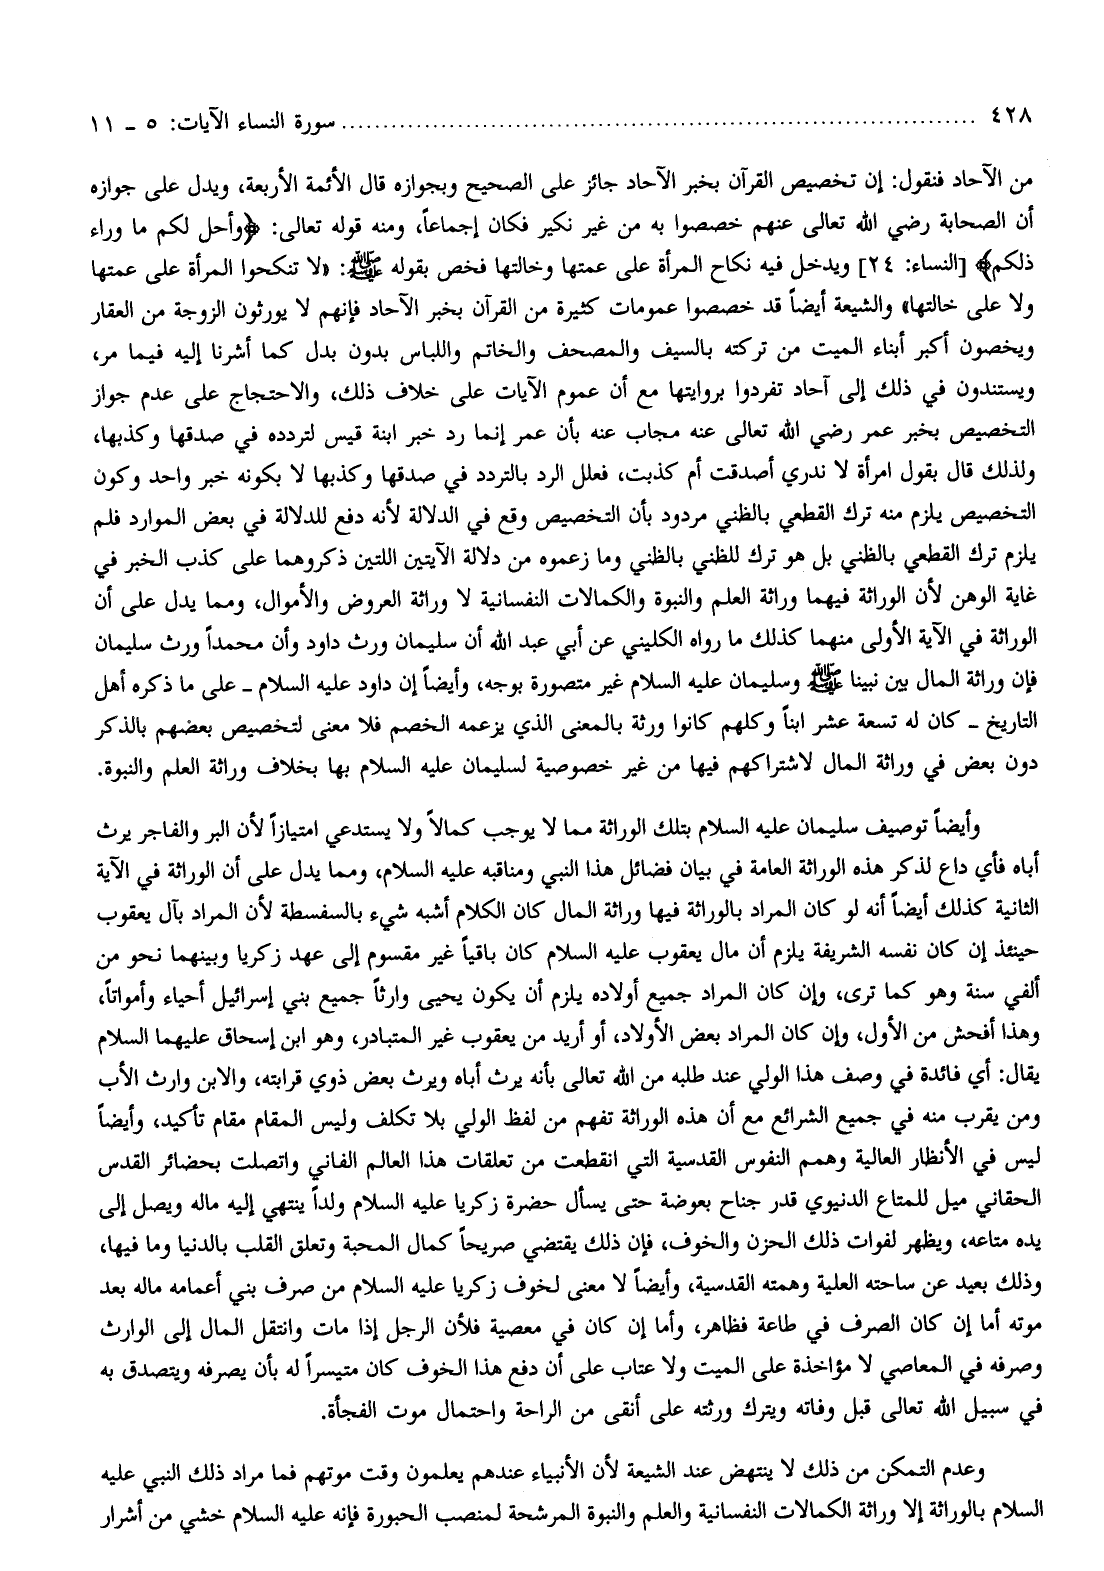 ٤٢٨ ........................................................ سورة النساء الآيات: ٥ ـ ١١
من الآحاد فنقول: إن تخصيص القرآن بخبر الآحاد جائز على الصحيح وبجوازه قال الأئمة الأربعة، ويدل على جوازه
أن الصحابة رضي الله تعالى عنهم خصصوا به من غير نكير فكان إجماعاً، ومنه قوله تعالى: ﴿وأحل لكم ما وراء
ذلكم﴾ [النساء: ٢٤] ويدخل فيه نكاح المرأة على عمتها وخالتها فخص بقوله ﷺ: «لا تنكحوا المرأة على عمتها
ولا على خالتها» والشيعة أيضاً قد خصصوا عمومات كثيرة من القرآن بخبر الآحاد فإنهم لا يورثون الزوجة من العقار
ويخصون أكبر أبناء الميت من تركته بالسيف والمصحف والخاتم واللباس بدون بدل كما أشرنا إليه فيما مر،
ويستندون في ذلك إلى آحاد تفردوا بروايتها مع أن عموم الآيات على خلاف ذلك، والاحتجاج على عدم جواز
التخصيص بخبر عمر رضي الله تعالى عنه مجاب عنه بأن عمر إنما رد خبر ابنة قيس لتردده في صدقها وكذبها،
ولذلك قال بقول امرأة لا ندري أصدقت أم كذبت، فعلل الرد بالتردد في صدقها وكذبها لا بكونه خبر واحد وكون
التخصيص يلزم منه ترك القطعي بالظني مردود بأن التخصيص وقع في الدلالة لأنه دفع للدلالة في بعض الموارد فلم
يلزم ترك القطعي بالظني بل هو ترك للظني بالظني وما زعموه من دلالة الآيتين اللتين ذكروهما على كذب الخبر في
غاية الوهن لأن الوراثة فيهما وراثة العلم والنبوة والكمالات النفسانية لا وراثة العروض والأموال، ومما يدل على أن
الوراثة في الآية الأولى منهما كذلك ما رواه الكليني عن أبي عبد الله أن سليمان ورث داود وأن محمداً ورث سليمان
فإن وراثة المال بين نبينا ﷺ وسليمان عليه السلام غير متصورة بوجه، وأيضاً إن داود عليه السلام ـ على ما ذكره أهل
التاريخ ـ كان له تسعة عشر ابناً وكلهم كانوا ورثة بالمعنى الذي يزعمه الخصم فلا معنى لتخصيص بعضهم بالذكر
دون بعض في وراثة المال لاشتراكهم فيها من غير خصوصية لسليمان عليه السلام بها بخلاف وراثة العلم والنبوة.
وأيضاً توصيف سليمان عليه السلام بتلك الوراثة مما لا يوجب كمالاً ولا يستدعي امتيازاً لأن البر والفاجر يرث
أباه فأي داع لذكر هذه الوراثة العامة في بيان فضائل هذا النبي ومناقبه عليه السلام، ومما يدل على أن الوراثة في الآية
الثانية كذلك أيضاً أنه لو كان المراد بالوراثة فيها وراثة المال كان الكلام أشبه شيء بالسفسطة لأن المراد بآل يعقوب
حينئذ إن كان نفسه الشريفة يلزم أن مال يعقوب عليه السلام كان باقياً غير مقسوم إلى عهد زكريا وبينهما نحو من
ألفي سنة وهو كما ترى، وإن كان المراد جميع أولاده يلزم أن يكون يحيى وارثاً جميع بني إسرائيل أحياء وأمواتاً،
وهذا أفحش من الأول، وإن كان المراد بعض الأولاد، أو أريد من يعقوب غير المتبادر، وهو ابن إسحاق عليهما السلام
يقال: أي فائدة في وصف هذا الولي عند طلبه من الله تعالى بأنه يرث أباه ويرث بعض ذوي قرابته، والابن وارث الأب
ومن يقرب منه في جميع الشرائع مع أن هذه الوراثة تفهم من لفظ الولي بلا تكلف وليس المقام مقام تأكيد، وأيضاً
ليس في الأنظار العالية وهمم النفوس القدسية التي انقطعت من تعلقات هذا العالم الفاني واتصلت بحضائر القدس
الحقاني ميل للمتاع الدنيوي قدر جناح بعوضة حتى يسأل حضرة زكريا عليه السلام ولداً ينتهي إليه ماله ويصل إلى
يده متاعه، ويظهر لفوات ذلك الحزن والخوف، فإن ذلك يقتضي صريحاً كمال المحبة وتعلق القلب بالدنيا وما فيها،
وذلك بعيد عن ساحته العلية وهمته القدسية، وأيضاً لا معنى لخوف زكريا عليه السلام من صرف بني أعمامه ماله بعد
موته أما إن كان الصرف في طاعة فظاهر، وأما إن كان في معصية فلأن الرجل إذا مات وانتقل المال إلى الوارث
وصرفه في المعاصي لا مؤاخذة على الميت ولا عتاب على أن دفع هذا الخوف كان متيسراً له بأن يصرفه ويتصدق به
في سبيل الله تعالى قبل وفاته ويترك ورثته على أنقى من الراحة واحتمال موت الفجأة.
وعدم التمكن من ذلك لا ينتهض عند الشيعة لأن الأنبياء عندهم يعلمون وقت موتهم فما مراد ذلك النبي عليه
السلام بالوراثة إلا وراثة الكمالات النفسانية والعلم والنبوة المرشحة لمنصب الحبورة فإنه عليه السلام خشي من أشرار